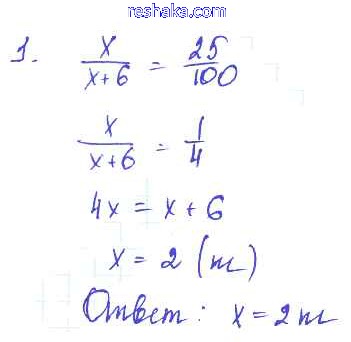 reshaka.com
1. x/(x+6) = 25/100
x/(x+6) = 1/4
4x = x + 6
x = 2 (т)
Ответ: x = 2 т